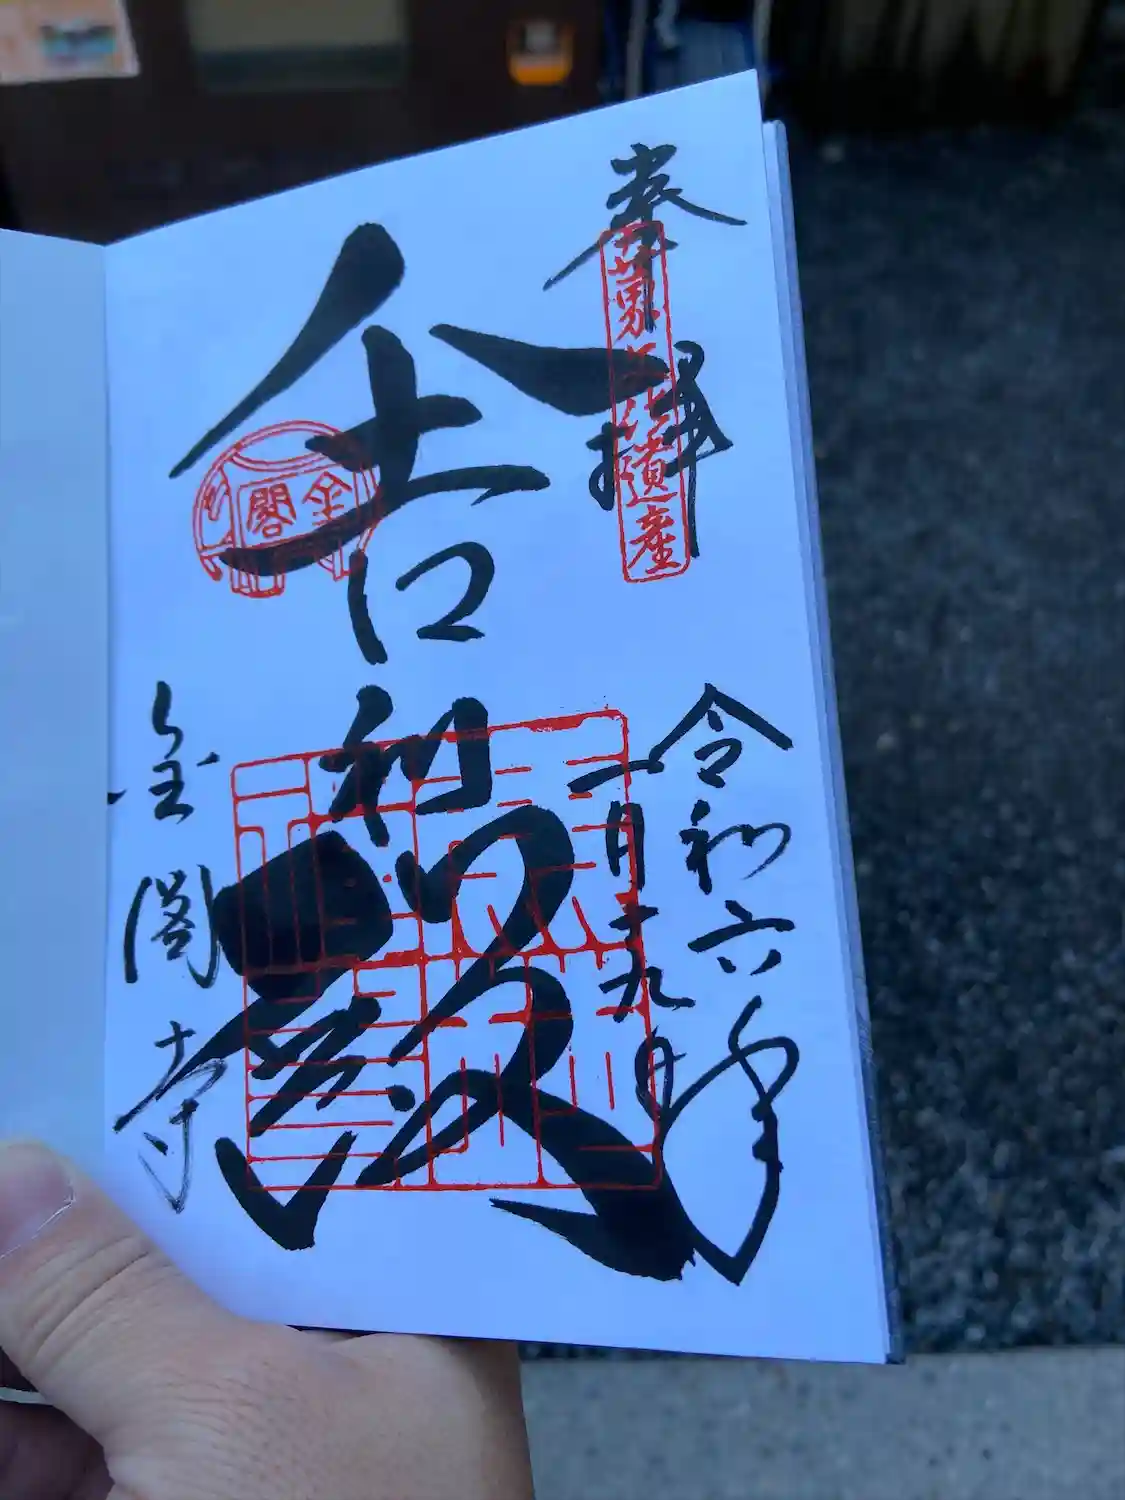 奉拝
世界文化遺産
令和六年
一月二十九日
舎利殿
金閣
金閣寺